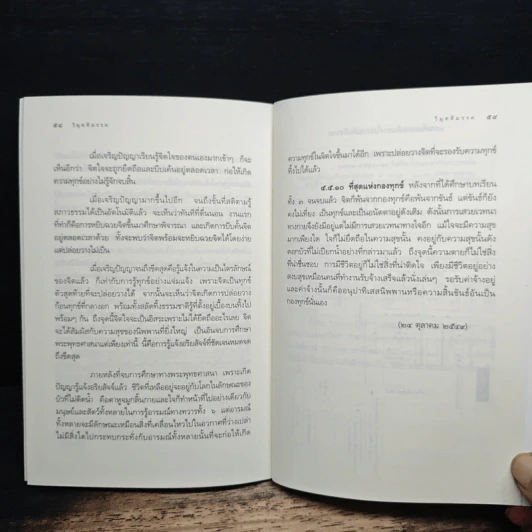 ๕๘ วิมุตติมรรค
เมื่อเจริญปัญญาเรียนรู้จิตใจของตนเองมากเข้าๆ ก็จะ
เห็นอีกว่า จิตใจจะถูกยึดถือและบีบคั้นอยู่ตลอดเวลา ก่อให้เกิด
ความทุกข์อย่างไม่รู้จักจบสิ้น
เมื่อเจริญปัญญามากขึ้นไปอีก จนถึงขั้นที่สติตามรู้
สภาวธรรมได้เป็นอัตโนมัติแล้ว จะเห็นว่าทันทีที่ตื่นนอน งานแรก
ที่ทำก็คือการหยิบฉวยจิตขึ้นมาศึกษาพิจารณา และเกิดการบีบคั้นจิต
อยู่ตลอดเวลาด้วย ทั้งจะพบว่าจิตพร้อมจะหยิบฉวยจิตได้โดยง่าย
แต่ปล่อยวางไม่เป็น
เมื่อเจริญปัญญาจนถึงขีดสุดคือรู้แจ้งในความเป็นไตรลักษณ์
ของจิตแล้ว ก็เท่ากับการรู้ทุกข์อย่างแจ่มแจ้ง เพราะจิตเป็นทุกข์
ตัวสุดท้ายที่จะปล่อยวางได้ จากนั้นจะเห็นว่าจิตเกิดการปล่อยวาง
ก้อนทุกข์ทั้งหมดออกไป พร้อมทั้งสลัดทิ้งธรรมชาติรู้ที่ตั้งอยู่เบื้องบนทิ้งไป
พร้อมๆ กัน ถึงจุดนี้จิตใจจะเป็นอิสระเพราะไม่ได้ยึดถืออะไรเลย จิต
จะได้สัมผัสกับความสุขของนิพพานที่ยิ่งใหญ่ เป็นอันจบการศึกษา
พระพุทธศาสนาแต่เพียงเท่านี้ นี้คือการรู้แจ้งอริยสัจจ์ที่ชัดเจนหมดจด
ถึงขีดสุด
ภายหลังที่จบการศึกษาทางพระพุทธศาสนา เพราะเกิด
ปัญญารู้แจ้งอริยสัจจ์แล้ว ชีวิตที่เหลืออยู่จะอยู่กับโลกในลักษณะของ
บัวที่ไม่ติดน้ำ คือตาหูจมูกลิ้นกายและใจก็ทำหน้าที่ไปอย่างเดียวกับ
มนุษย์และสัตว์ทั้งหลายในการรู้อารมณ์ทางทวารทั้ง ๖ แต่อารมณ์
ทั้งหลายจะมีลักษณะเหมือนสิ่งที่เคลื่อนไหวไปในอวกาศที่ว่างเปล่า
ไม่มีสิ่งใดไปกระทบกระทั่งกับอารมณ์ทั้งหลายนั้นที่จะก่อให้เกิด
วิมุตติมรรค ๕๙
ความทุกข์ในจิตใจขึ้นมาได้อีก เพราะปล่อยวางจิตที่จะรองรับความทุกข์
ทิ้งไปได้แล้ว
๕.๕.๑๐ ที่สุดแห่งกองทุกข์ หลังจากที่ได้ศึกษาบทเรียน
ทั้ง ๓ จนจบแล้ว จิตก็พ้นจากกองทุกข์คือพ้นจากขันธ์ แต่ขันธ์ก็ยัง
คงไม่เที่ยง เป็นทุกข์ และเป็นอนัตตาอยู่ดังเดิม ดังนั้นการเสวยเวทนา
ทางกายจึงยังมีอยู่แต่ไม่มีการเสวยเวทนาทางใจอีก แม้ใจจะมีความสุข
มากเพียงใด ใจก็ไม่ยึดถือในความสุขนั้น คงอยู่กับความสุขนั้นดัง
ดอกบัวที่ไม่เปียกน้ำอย่างที่กล่าวมาแล้ว ถึงจุดนี้ความตายก็ไม่ใช่สิ่ง
ที่น่าชื่นชอบ การมีชีวิตอยู่ก็ไม่ใช่สิ่งที่น่าติดใจ เพียงแต่มีชีวิตอยู่อย่าง
สงบสุขเหมือนคนที่ทำงานรับจ้างเสร็จแล้วนั่งเล่นๆ รอรับค่าจ้างอยู่
และค่าจ้างนั้นก็คืออนุปาทิเสสนิพพานหรือความสิ้นขันธ์อันเป็น
กองทุกข์นั่นเอง
(๒๔ ตุลาคม ๒๕๔๙)